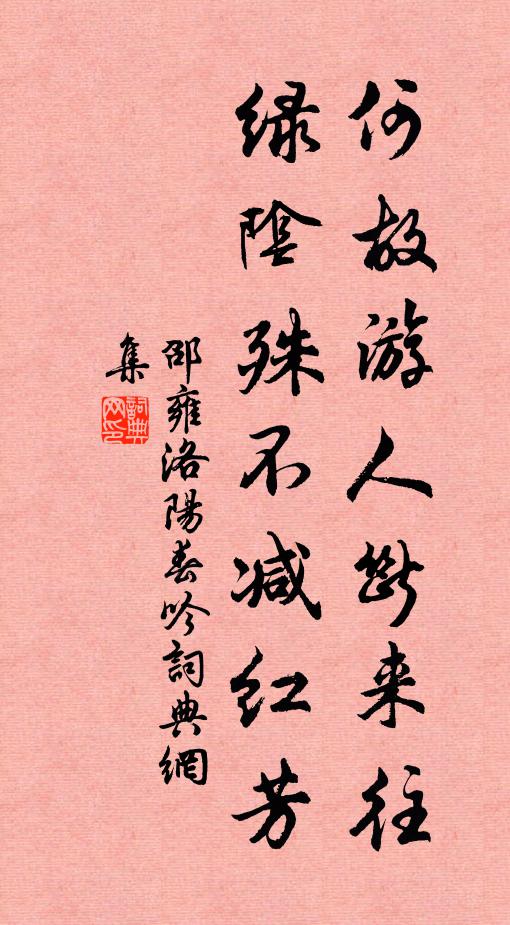 何故游人断来往
绿陰殊不减红芳
邵雍洛陽春吟詞典網
集
詞典网印